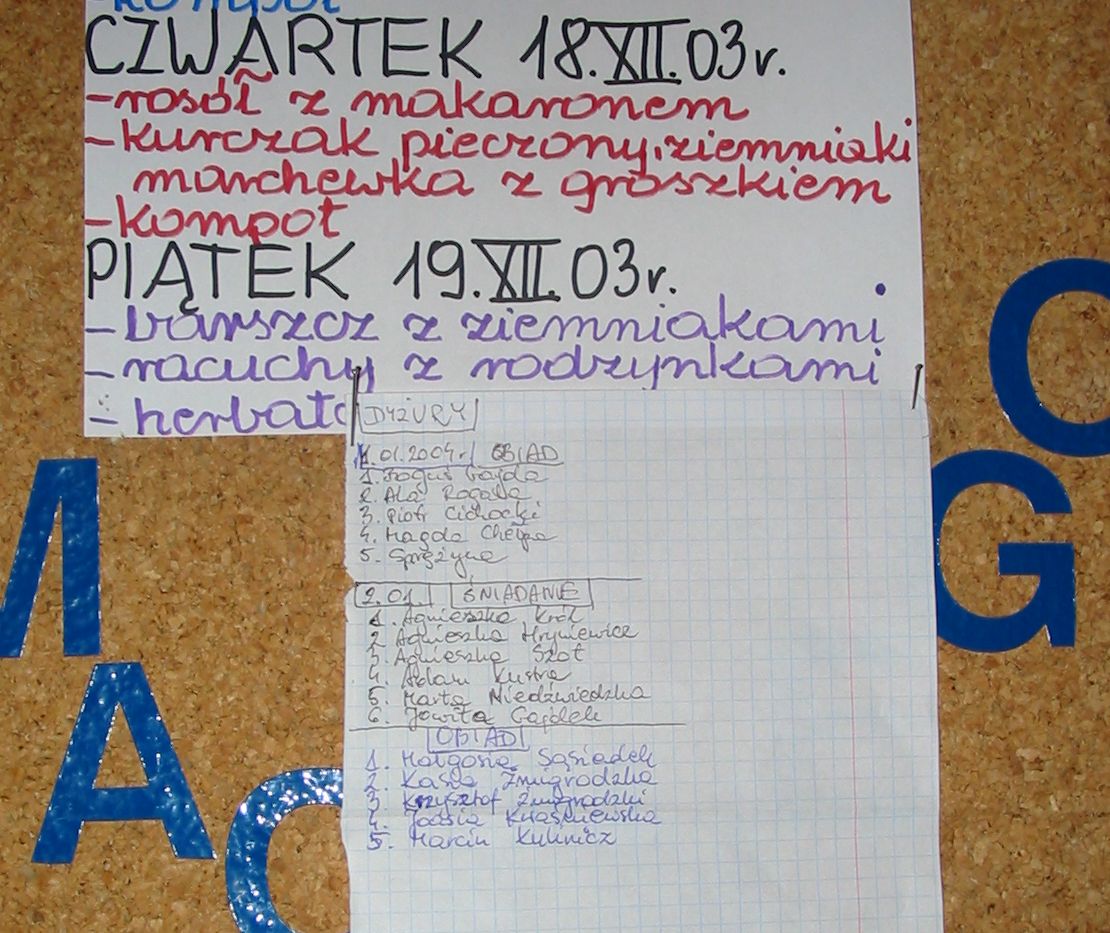 -kompot
CZWARTEK 18.XII.03r.
-rosół z makaronem
-kurczak pieczony, ziemniaki
marchewka z groszkiem
-kompot
PIĄTEK 19.XII.03r.
-barszcz z ziemniakami
-racuchy z rodzynkami
-herbata
DYŻURY
1.01.2004r. OBIAD
1. Boguś Gajda
2. Ala Rogowa
3. Piotr Cichocki
4. Magda
5. Sprężyna
2.01 ŚNIADANIE
1. Agnieszka Król
2. Agnieszka Hryniewicz
3. Agnieszka Szot
4. Adam Kustra
5. Marta Niedźwiedzka
6. Jowita
OBIAD
1. Małgosia Sąsiadek
2. Kasia Żmigrodzka
3. Krzysztof Żmigrodzki
4. Joasia Kwaśniewska
5. Marcin Kulinicz
M
A
O
O
G